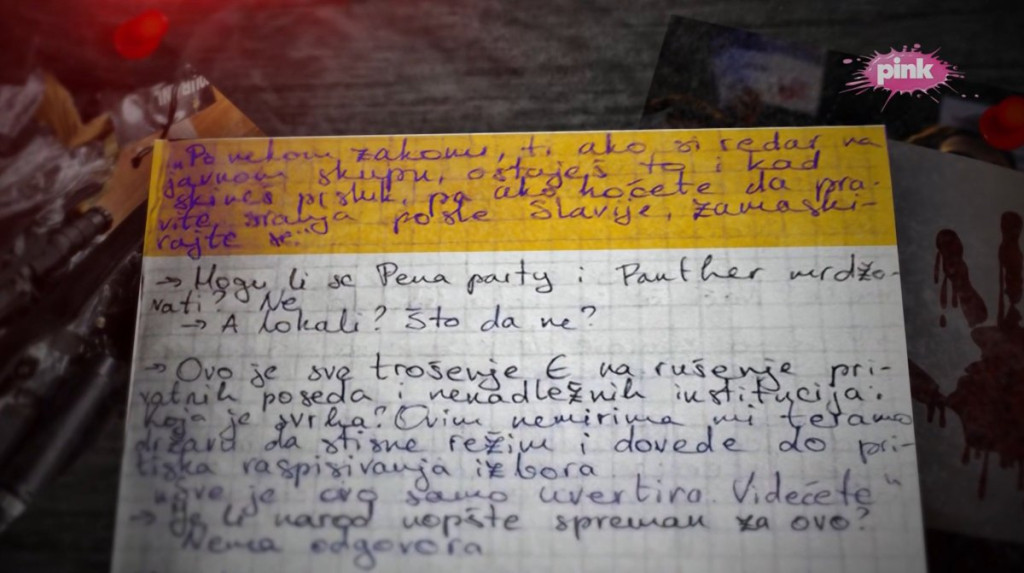 pink
„Po nekom zakonu, ti ako si redar na
javnom skupu, ostaješ to i kad
skineš prsluk, pa ako hoćete da pra-
vite sranja posle Slavije, zamaski-
rajte se."
→ Mogu li se Pena party i Panther urdžo-
vati? Ne
→ A lokali? Što da ne?
→ Ovo je sve trošenje € na rušenje pri-
vatnih poseda i nenadležnih institucija.
Koja je svrha? Ovim nemirima mi teramo
državu da stisne režim i dovede do pri-
tiska raspisivanja izbora
"Sve je ovo samo uvertira. Videćete"
→ Je li narod uopšte spreman za ovo?
Nema odgovora